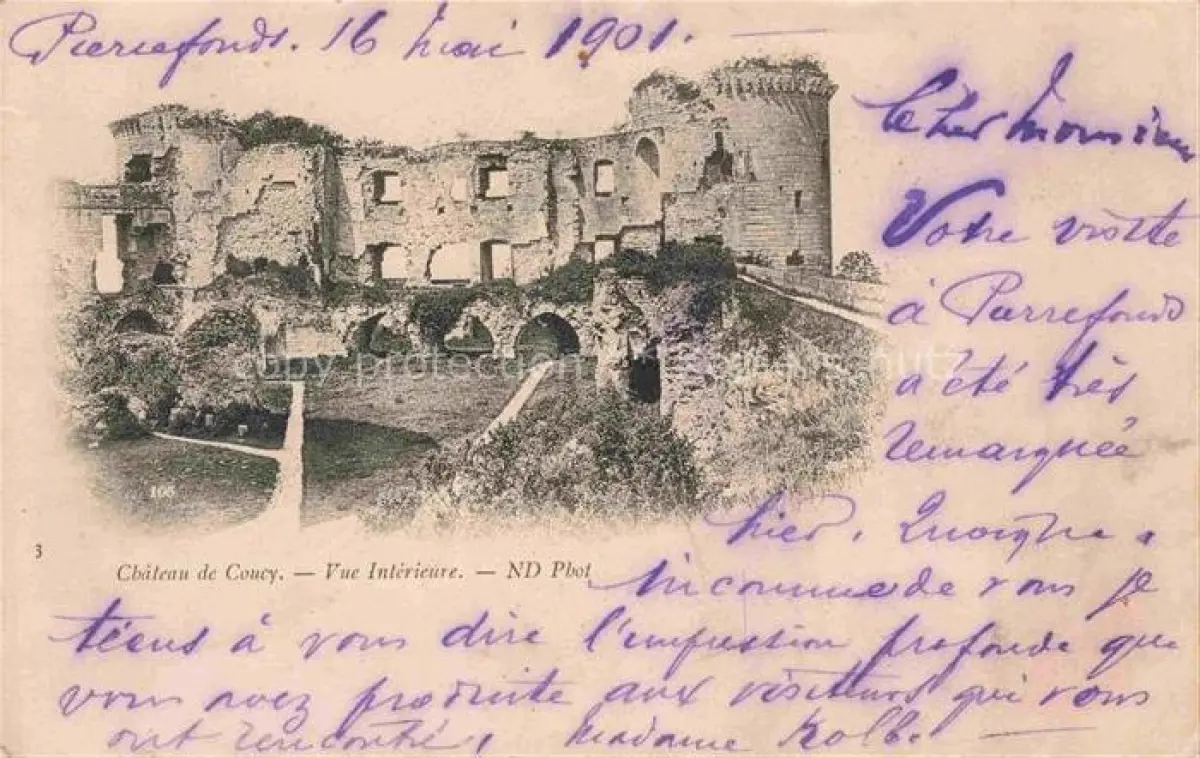 Pierrefonds. 16 Mai 1901. —
Cher Monsieur
Votre visite
à Pierrefonds
a été très
remarquée
hier. Quoique
incommode vous je
tiens à vous dire l'impression profonde que
vous avez produite aux visiteurs qui vous
ont rencontré, Madame Kolb. —
copy protection
108
3
Château de Coucy. — Vue Intérieure. — ND Phot